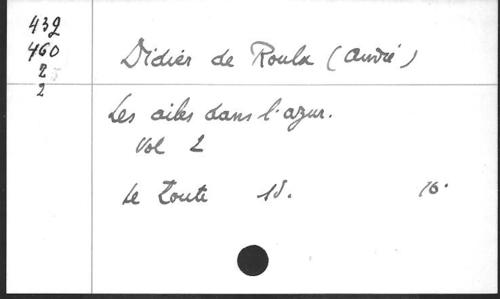 432
460
2
2
Didier de Roulx (André)
Les ailes dans l'azur.
Vol 2
Le Zoute 15. 16.